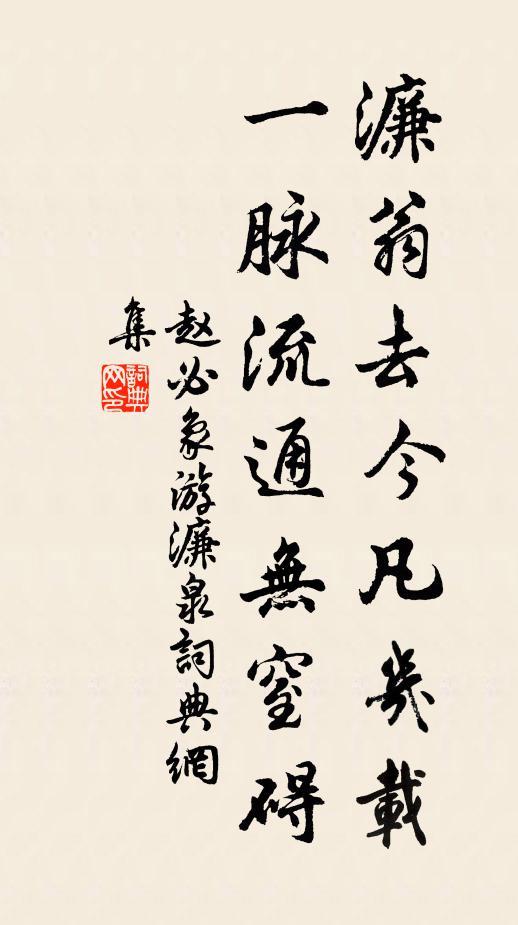 濂翁去今凡幾載
一脉流通無窒碍
赵必象游濂泉詞典網
集
詞典
网印